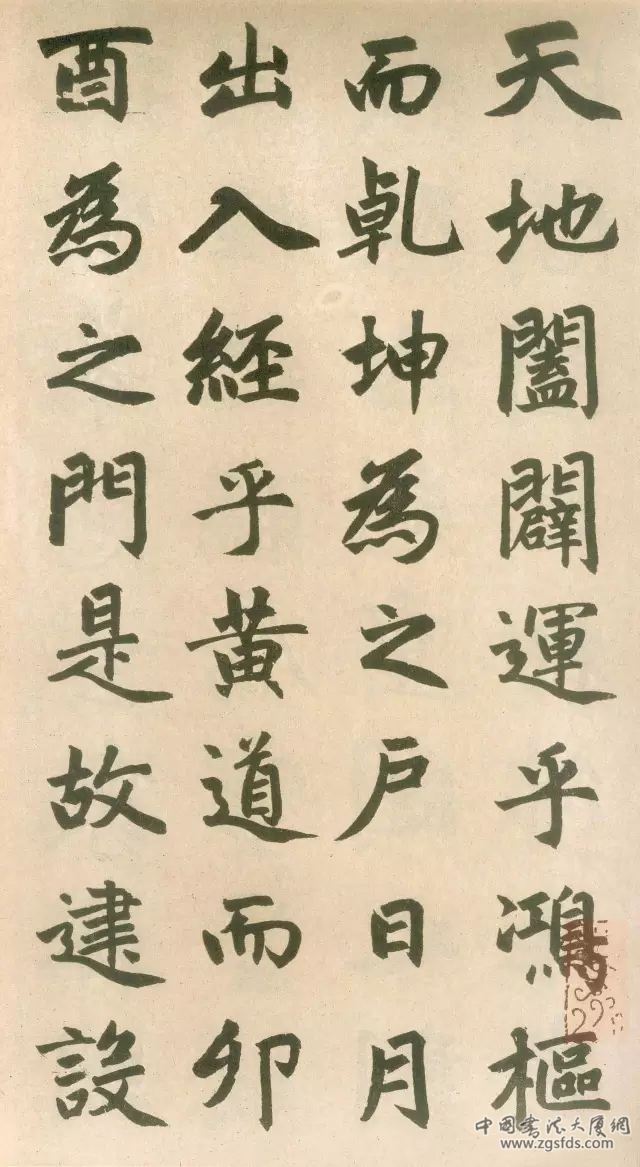 天地闔闢運乎鴻樞
而乹坤為之户日月
出入經乎黄道而卯
酉為之門是故建設
中国书法大厦網
www.zgsfds.com